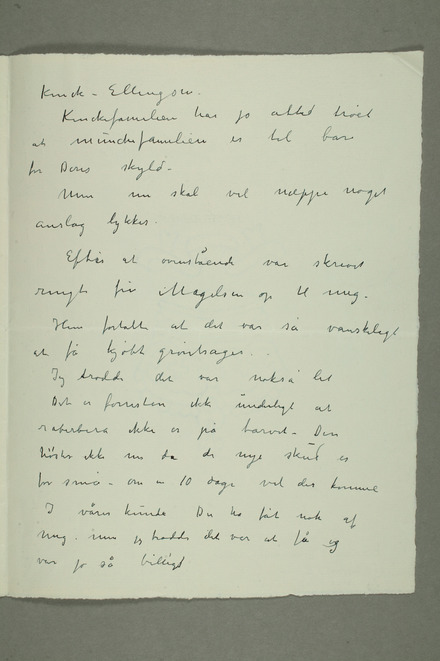 Kinck - Ellingsen.
Kinckfamilien har jo altid troet
at münderfamilien er til bare
for Deres skyld.
Men nu skal vel næppe noget
anslag lykkes.
Efter at ovenstående var skrevet
ringte fru Magelsen op til meg.
Hun fortalte at det var så vanskeligt
at få kjøbt grøntsager..
Jeg trodde det var også let
Det er forresten ikke underligt at
rabarbera ikke er på torvet. Den
høstes ikke nu da de nye skud er
for små - om en 10 dage vil der komme
I våres kunde De ha fåt nok af
meg. men jeg trodde det var at få og
var jo så billigt